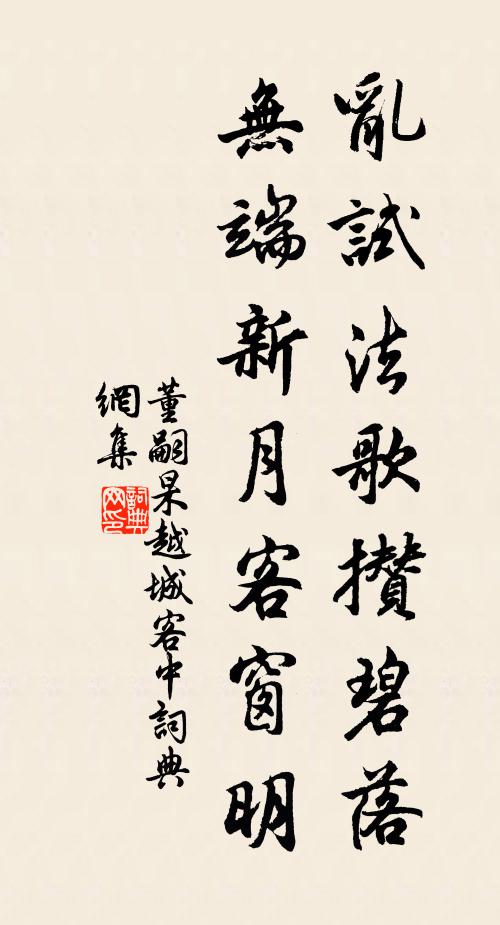 亂試法歌攢碧落
無端新月客窗明
董嗣杲越城客中詞典
網集
詞典
网印